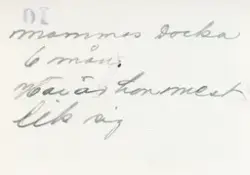 10
mammas docka
6 mån.
Här är hon mest
lik sig